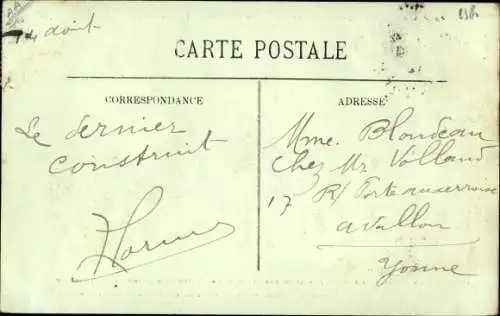 14 août
CARTE POSTALE
CORRESPONDANCE
ADRESSE
Le dernier
construit
Mme. Blondeau
chez Mr Volland
17 R/ Porte auxerroise
avallon
Yonne